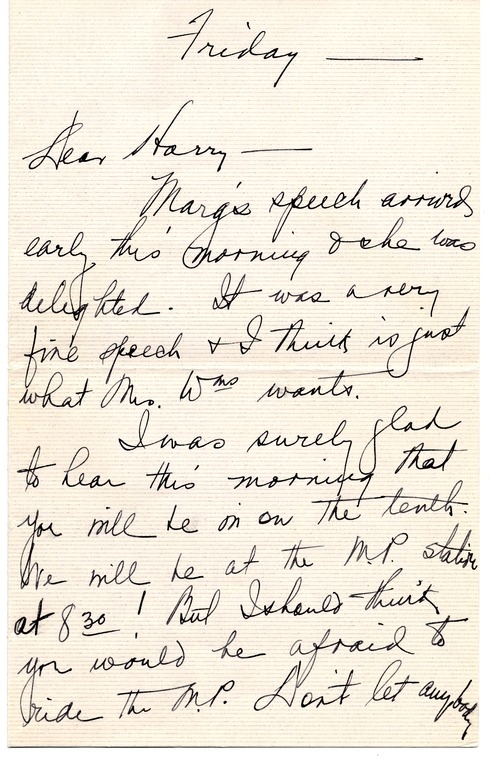 Friday —
Dear Harry —
Marg's speech arrived
early this morning & she was
delighted. It was a very
fine speech & I think is just
what Mrs. Wms wants.
I was surely glad
to hear this morning that
you will be in on the tenth.
We will be at the M.P. station
at 8 30! But I should think
you would be afraid to
ride the M.P. Don't let anybody